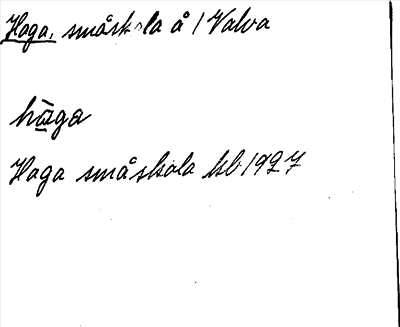 Haga, småskola å 1 Valva
håga
Haga småskola kb 1927